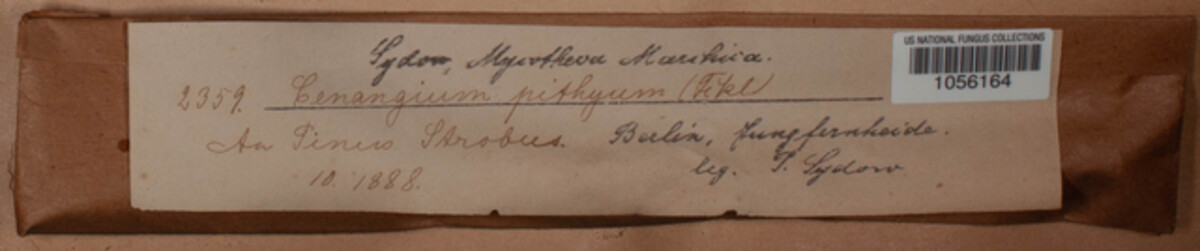 Sydow, Mycotheca Marchica.
US NATIONAL FUNGUS COLLECTIONS
1056164
2359. Cenangium pithyum (Fckl)
An Pinus Strobus. Berlin, Jungfernheide.
10. 1888. leg. P. Sydow